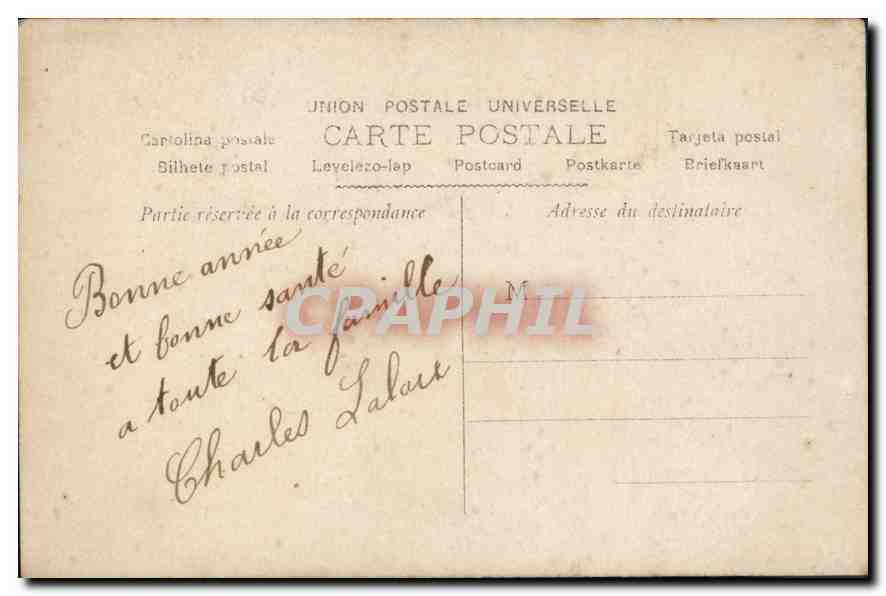 UNION POSTALE UNIVERSELLE
Cartolina postale CARTE POSTALE Tarjeta postal
Bilhete postal Levelezo-lap Postcard Postkarte Briefkaart
Partie réservée à la correspondance
Adresse du destinataire
Bonne année
et bonne santé
a toute la famille
Charles
M
CPAPHIL